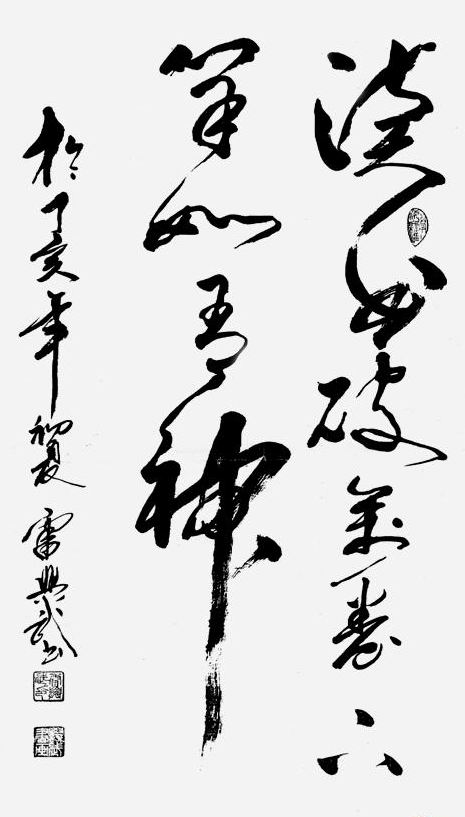 讀書破萬卷下
筆如有神
於丁亥年初夏 雷興武書